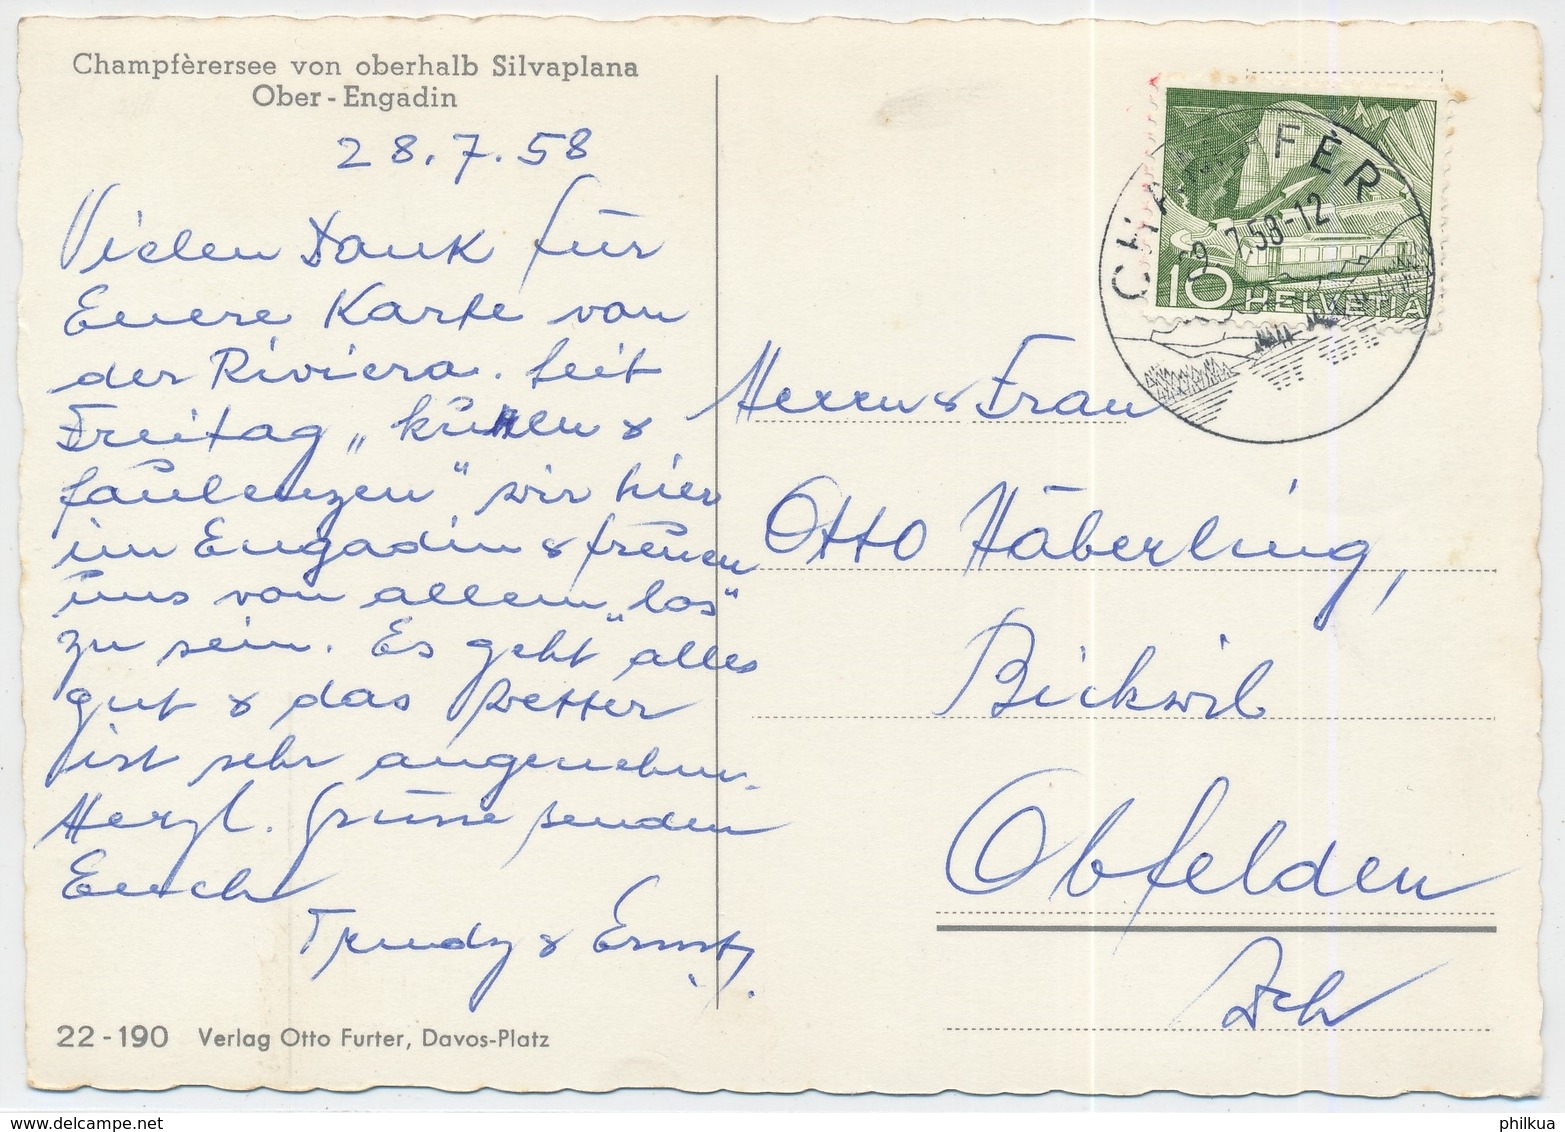 Champfèrersee von oberhalb Silvaplana
Ober-Engadin
28.7.58
Vielen Dank für
Euere Karte von
der Riviera. Seit
Freitag „kuren &
faulenzen" wir hier
im Engadin & freuen
uns von allem „los"
zu sein. Es geht alles
gut & das Wetter
ist sehr angenehm.
Herzl. Grüsse senden
Euch
Trudy & Ernst.
22-190 Verlag Otto Furter, Davos-Platz
CHAMPFÈR
29.7.58-12
10 HELVETIA
Herrn & Frau
Otto Häberling,
Bickwil
Obfelden
Zch
www.delcampe.net
philkua